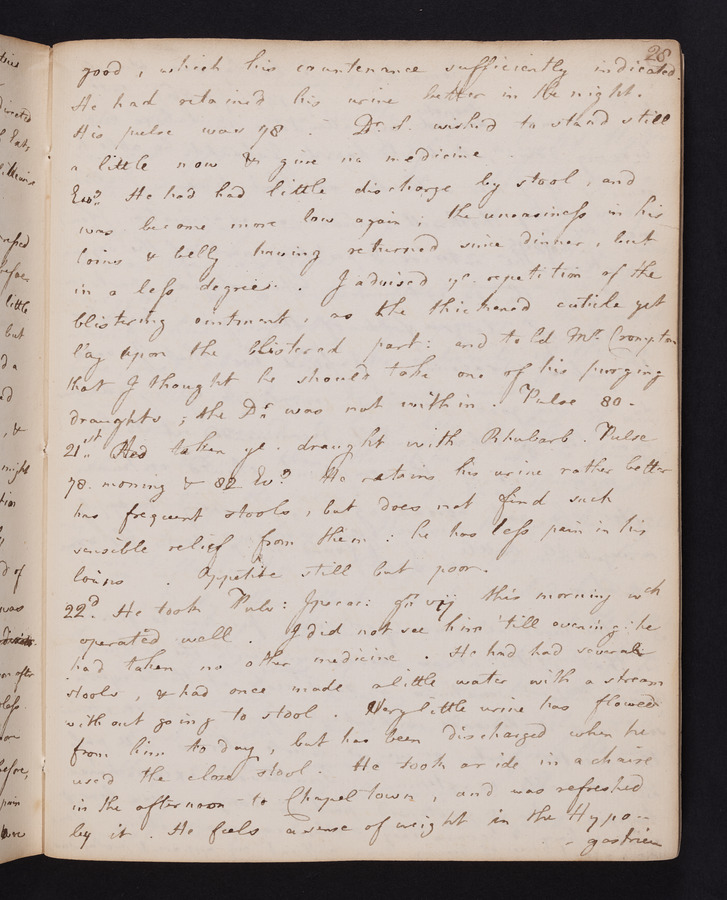 28
good, which his countenance sufficiently indicated.
He had retained his urine better in the night.
His pulse was 78. Dr. S. wished to stand still
a little now & give no medicine.
Eve? He had had little discharge by stool, and
was become more low again; the uneasiness in his
loins & belly having returned since dinner, but
in a less degree. I advised ye. repetition of the
blistering ointment, as the thickened cuticle yet
lay upon the blistered part: and told Mr. Crompton
that I thought he should take one of his purging
draughts; the Dr. was not within. Pulse 80.
21st. Had taken ye. draught with Rhubarb. Pulse
78. morning & 82 Eve? He retains his urine rather better
has frequent stools, but does not find such
sensible relief from them: he has less pain in his
loins. Appetite still but poor.
22d. He took Pulv: Ipecac: gr. vij this morning wch
operated well. I did not see him 'till evening: he
had taken no other medicine. He had had several
stools, & had once made a little water with a stream
without going to stool. Very little urine has flowed
from him to day, but has been discharged when he
used the close stool. He took a ride in a chaise
in the afternoon to Chapel town, and was refreshed
by it. He feels a sense of weight in the Hypo-
-gastrium